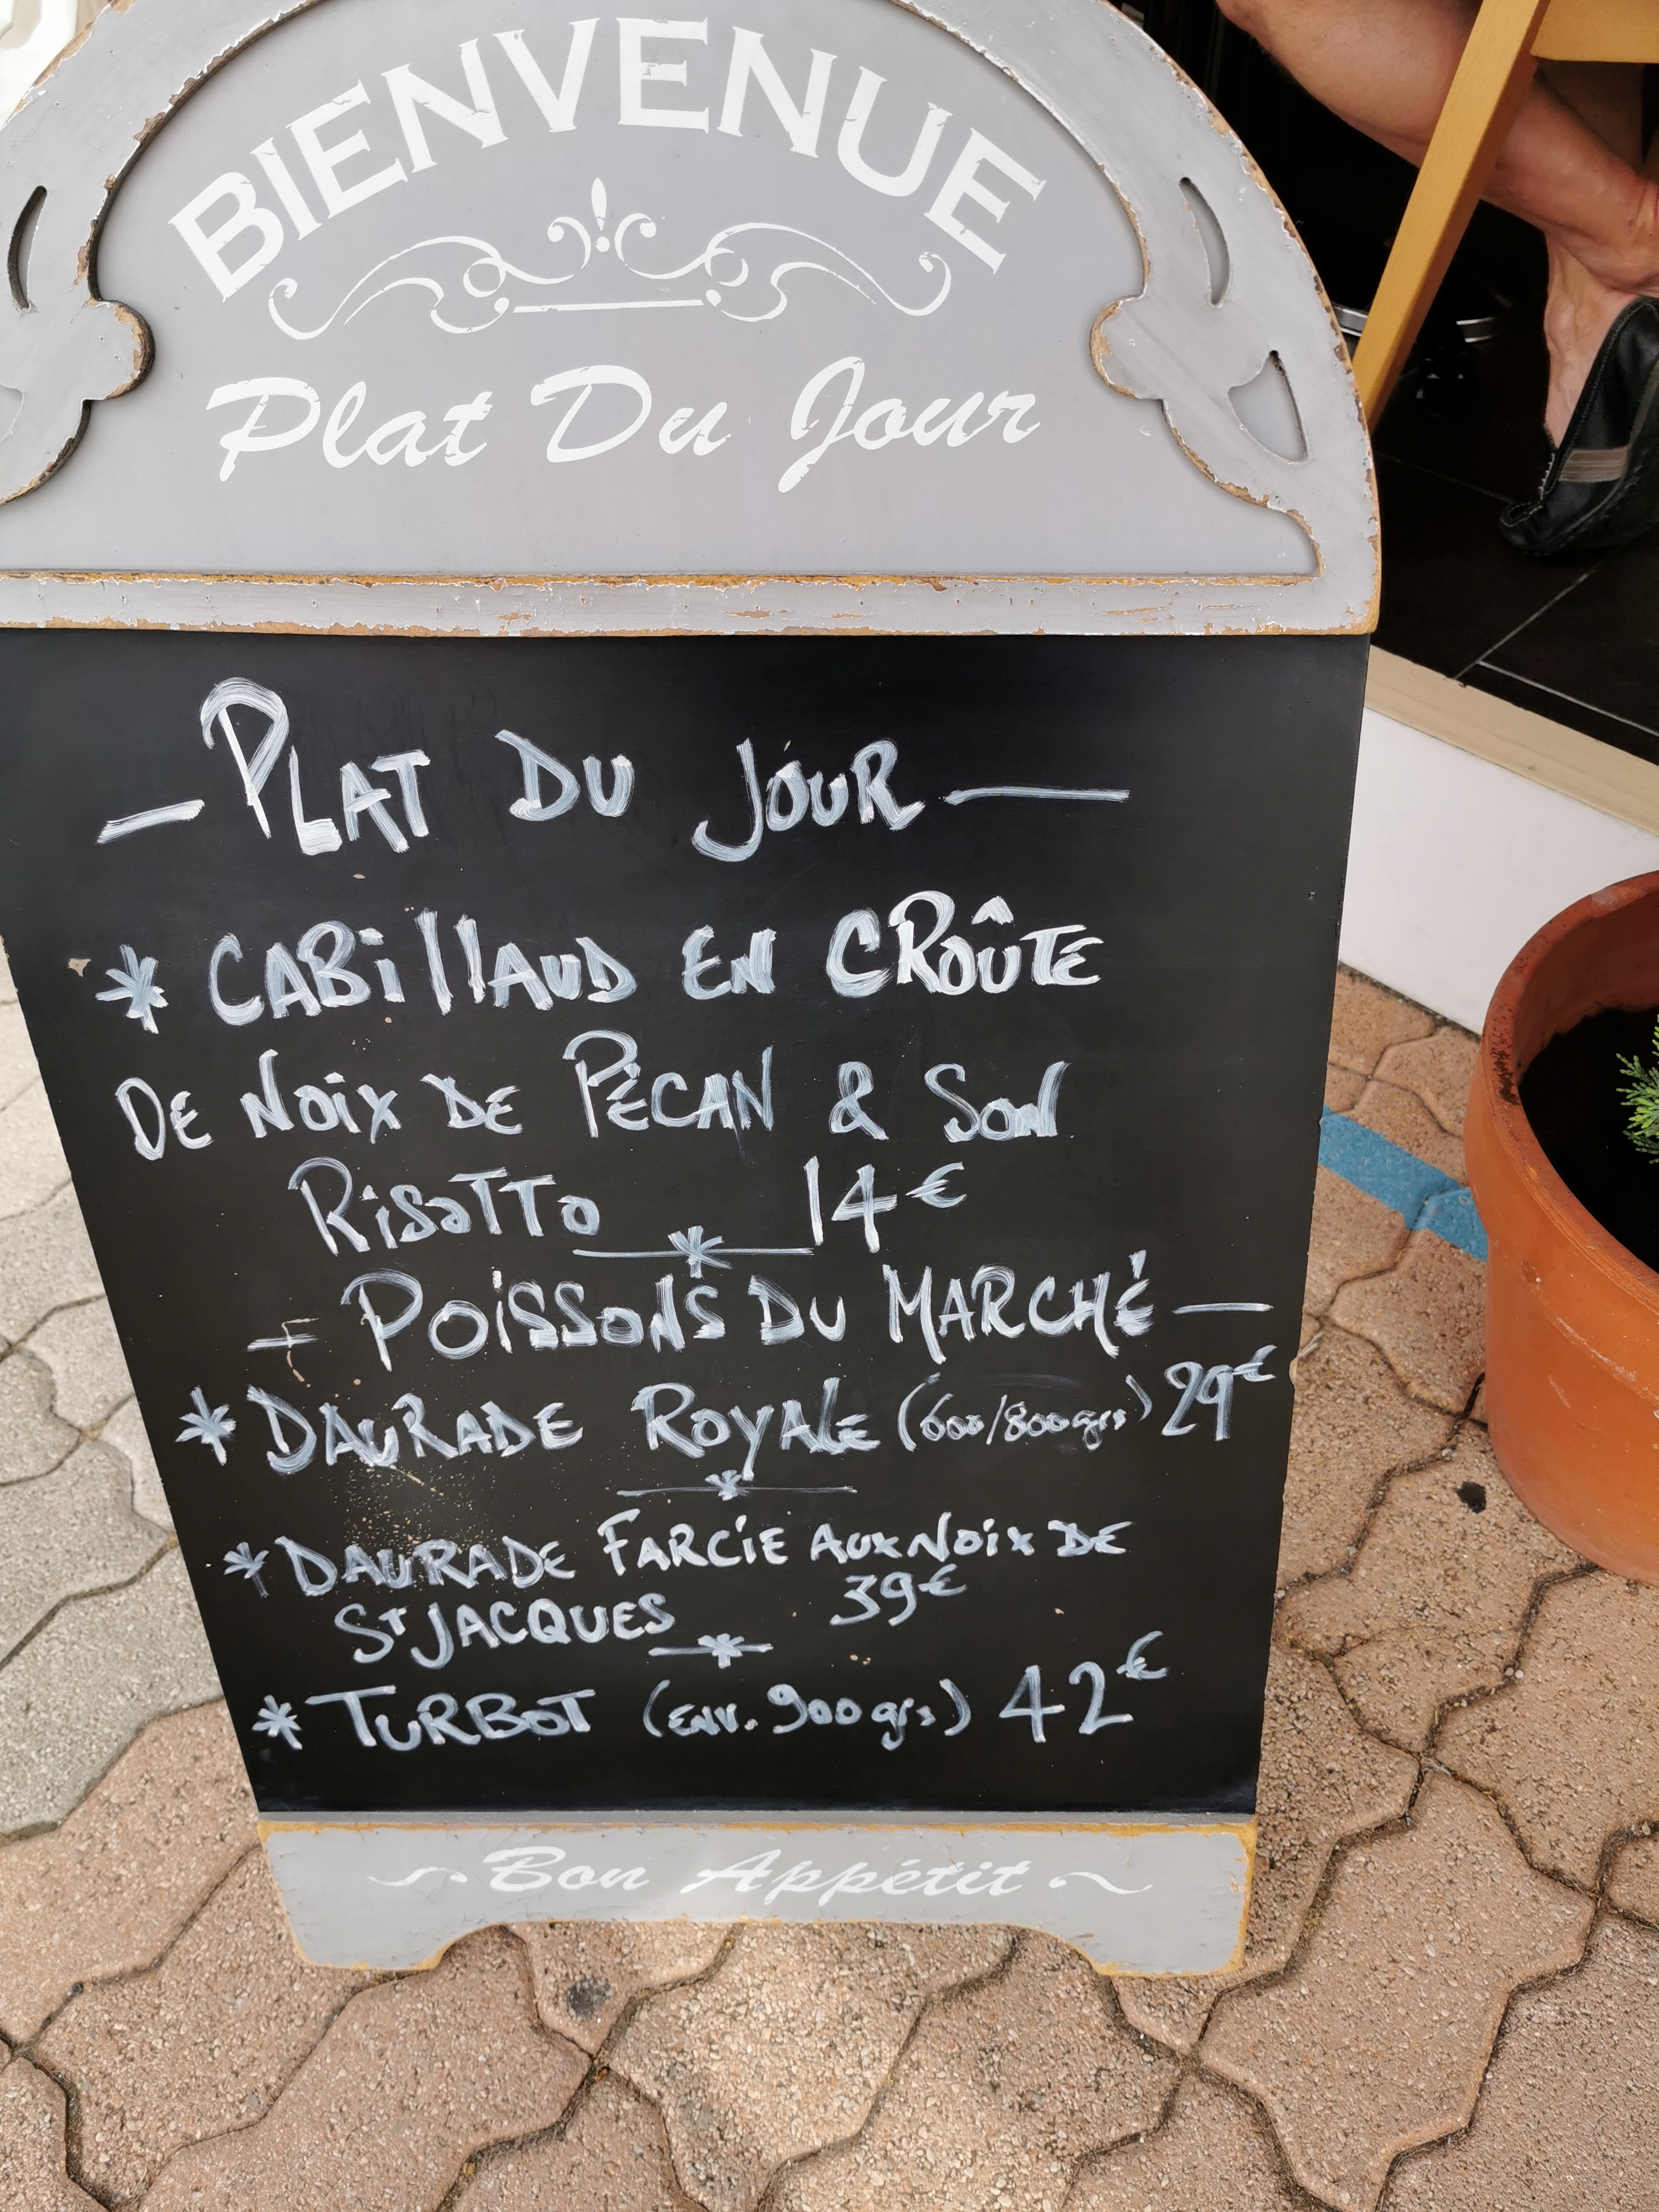 BIENVENUE
Plat Du Jour
— PLAT DU JOUR —
* CABillAUD EN CROÛTE
DE NOiX DE PÉCAN & SON
RiSOTTO 14€
*
— POiSSONS DU MARCHÉ —
* DAURADE ROYALE (600/800grs) 29€
*
* DAURADE FARCiE AUX NOiX DE
ST JACQUES 39€
*
* TURBOT (ENV. 900 grs) 42€
~ Bon Appétit ~